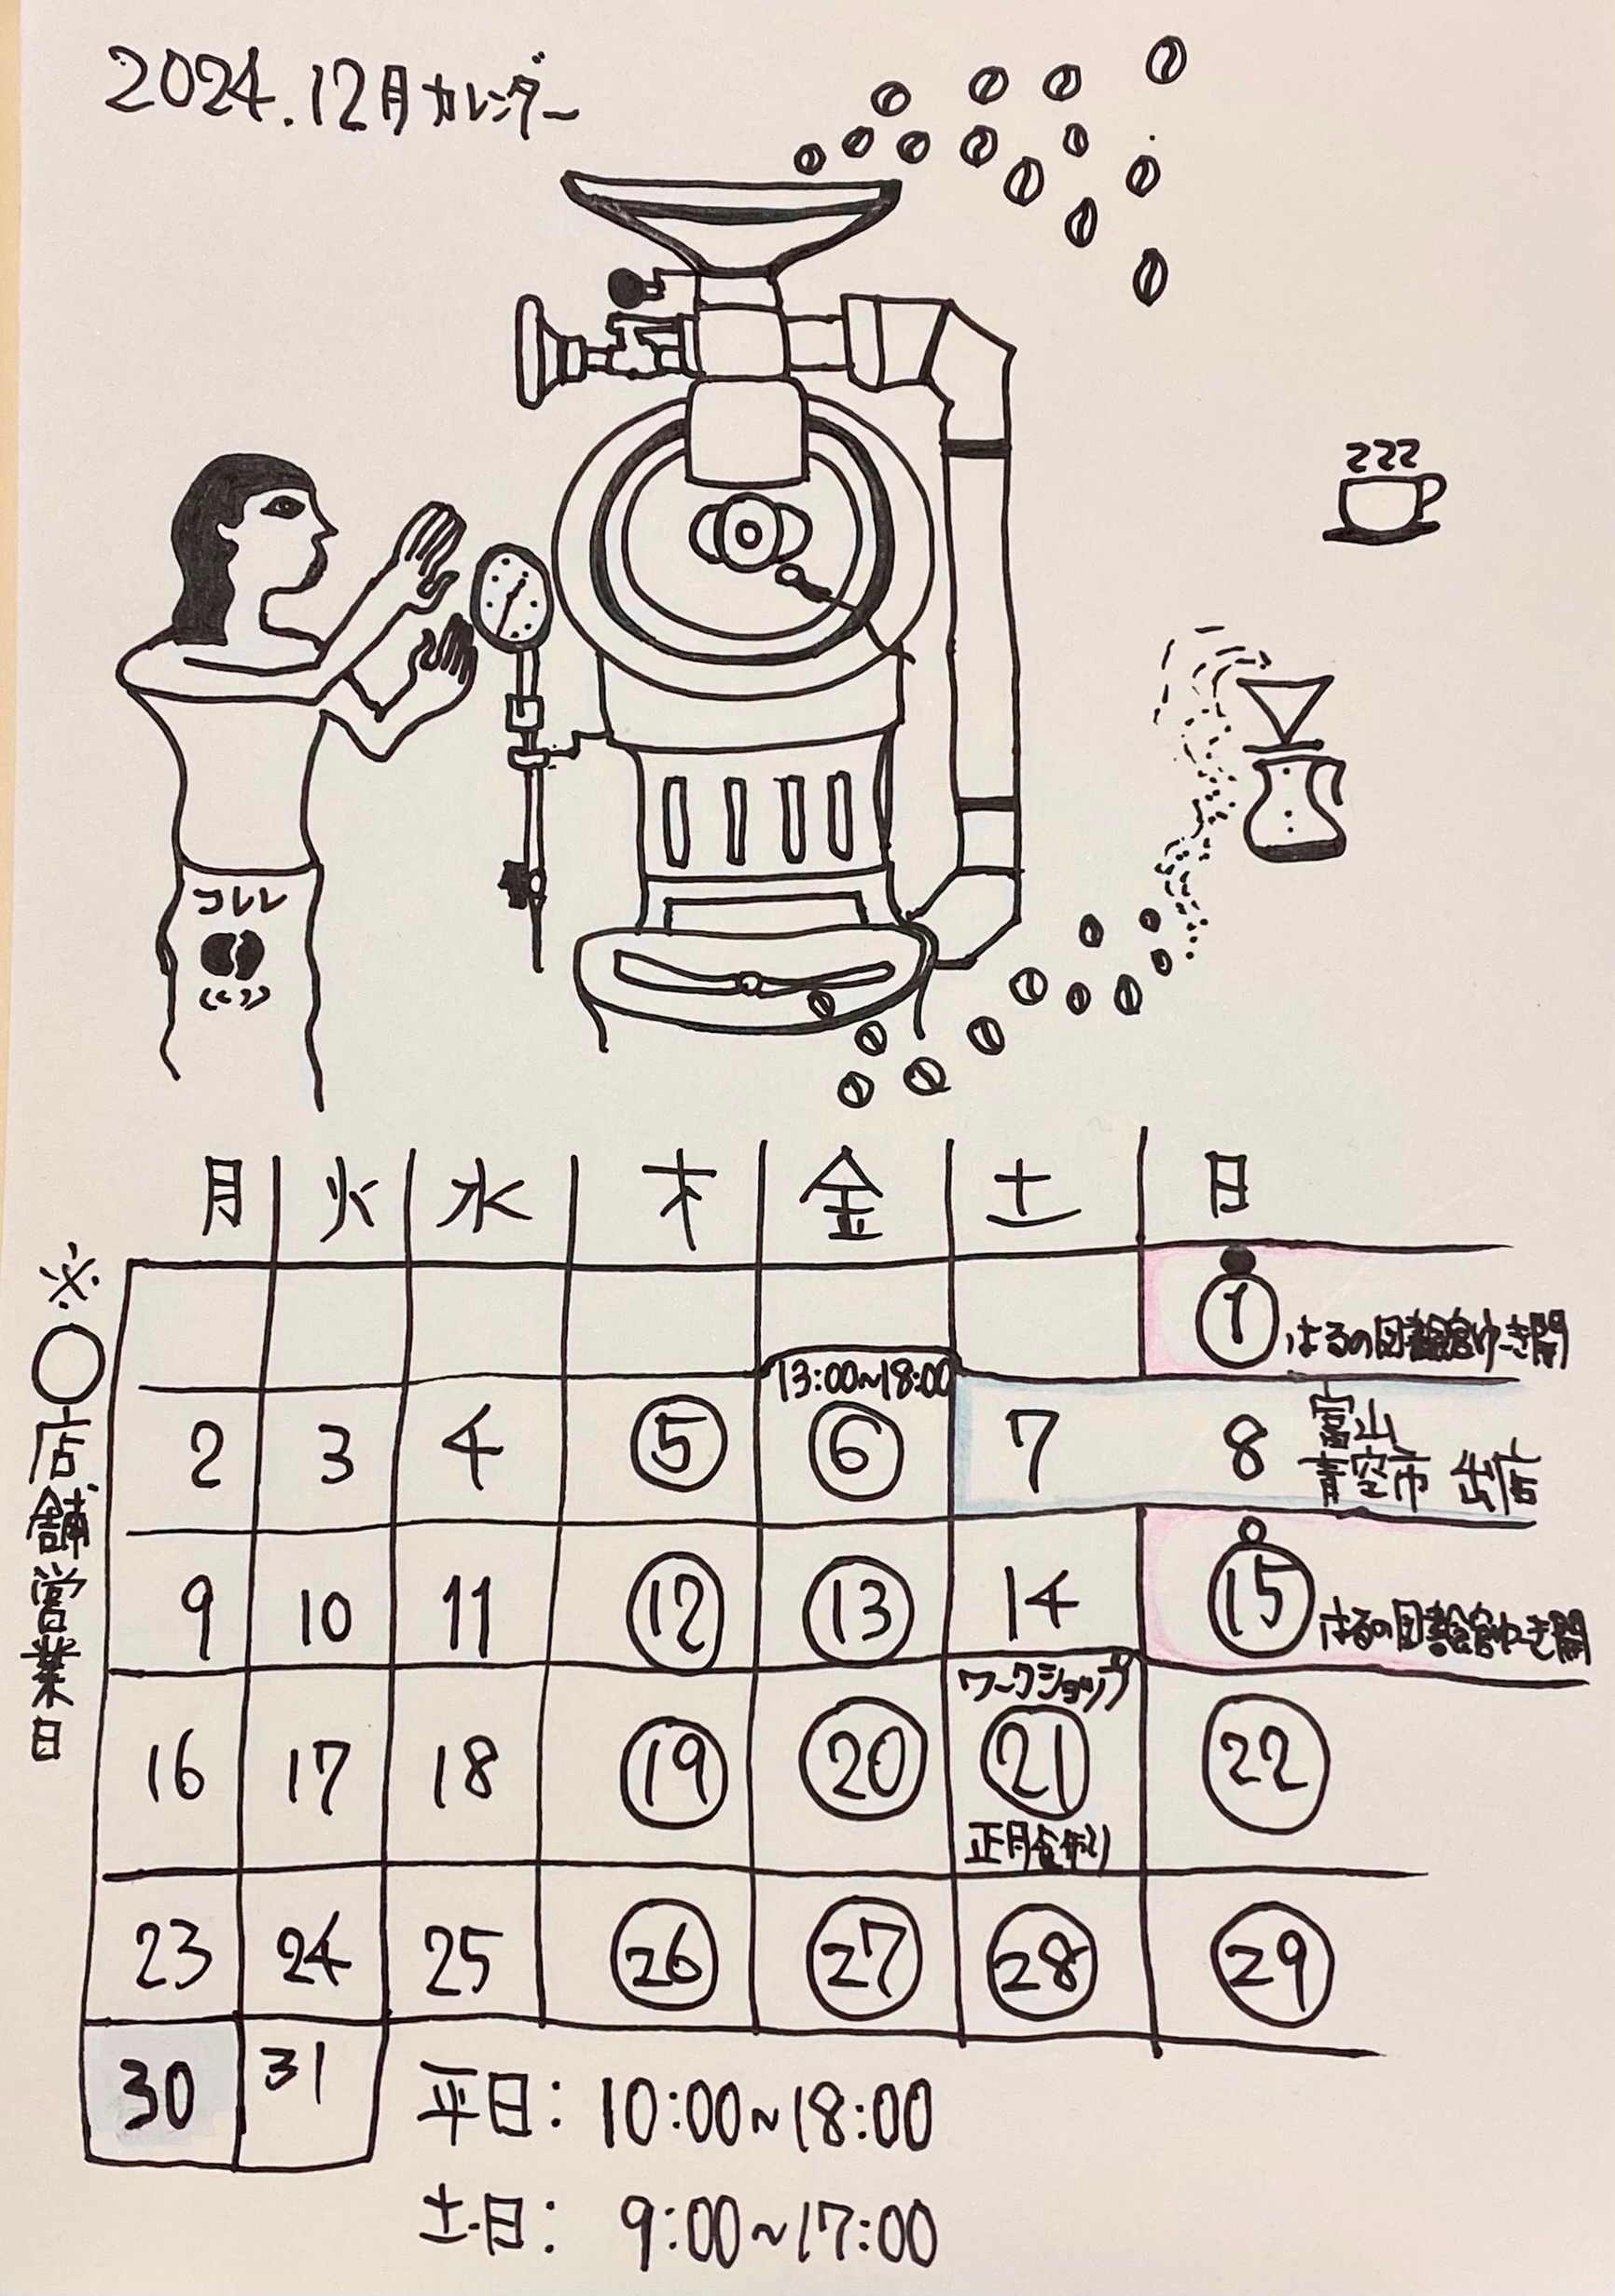 2024.12月カレンダー
コレレ
月 火 水 木 金 土 日
※○店舗営業日
1 はるの図書館ゆうき開
13:00~18:00
2 3 4 5 6 7 8 富山
青空市 出店
9 10 11 12 13 14 15 はるの図書館ゆうき開
ワークショップ
16 17 18 19 20 21 22
正月
23 24 25 26 27 28 29
30 31
平日: 10:00~18:00
土・日: 9:00~17:00